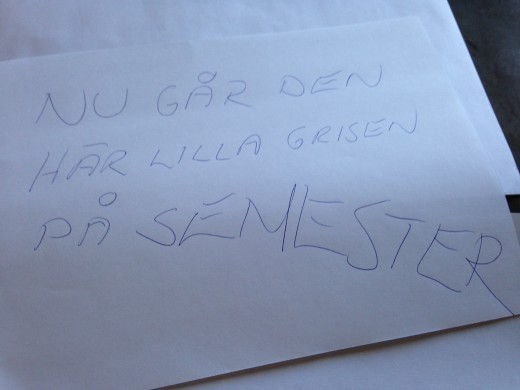 NU GÅR DEN
HÄR LILLA GRISEN
PÅ SEMESTER